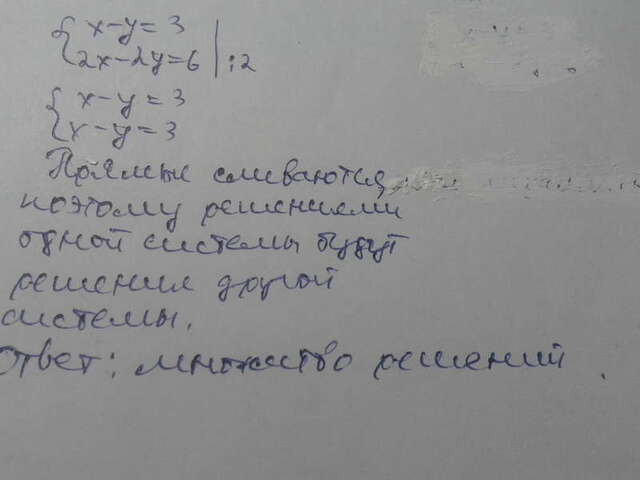 { x-y=3
2x-2y=6 |:2
{ x-y=3
x-y=3
Прямые сливаются,
поэтому решениями
одной системы будут
решения другой
системы.
Ответ: множество решений.